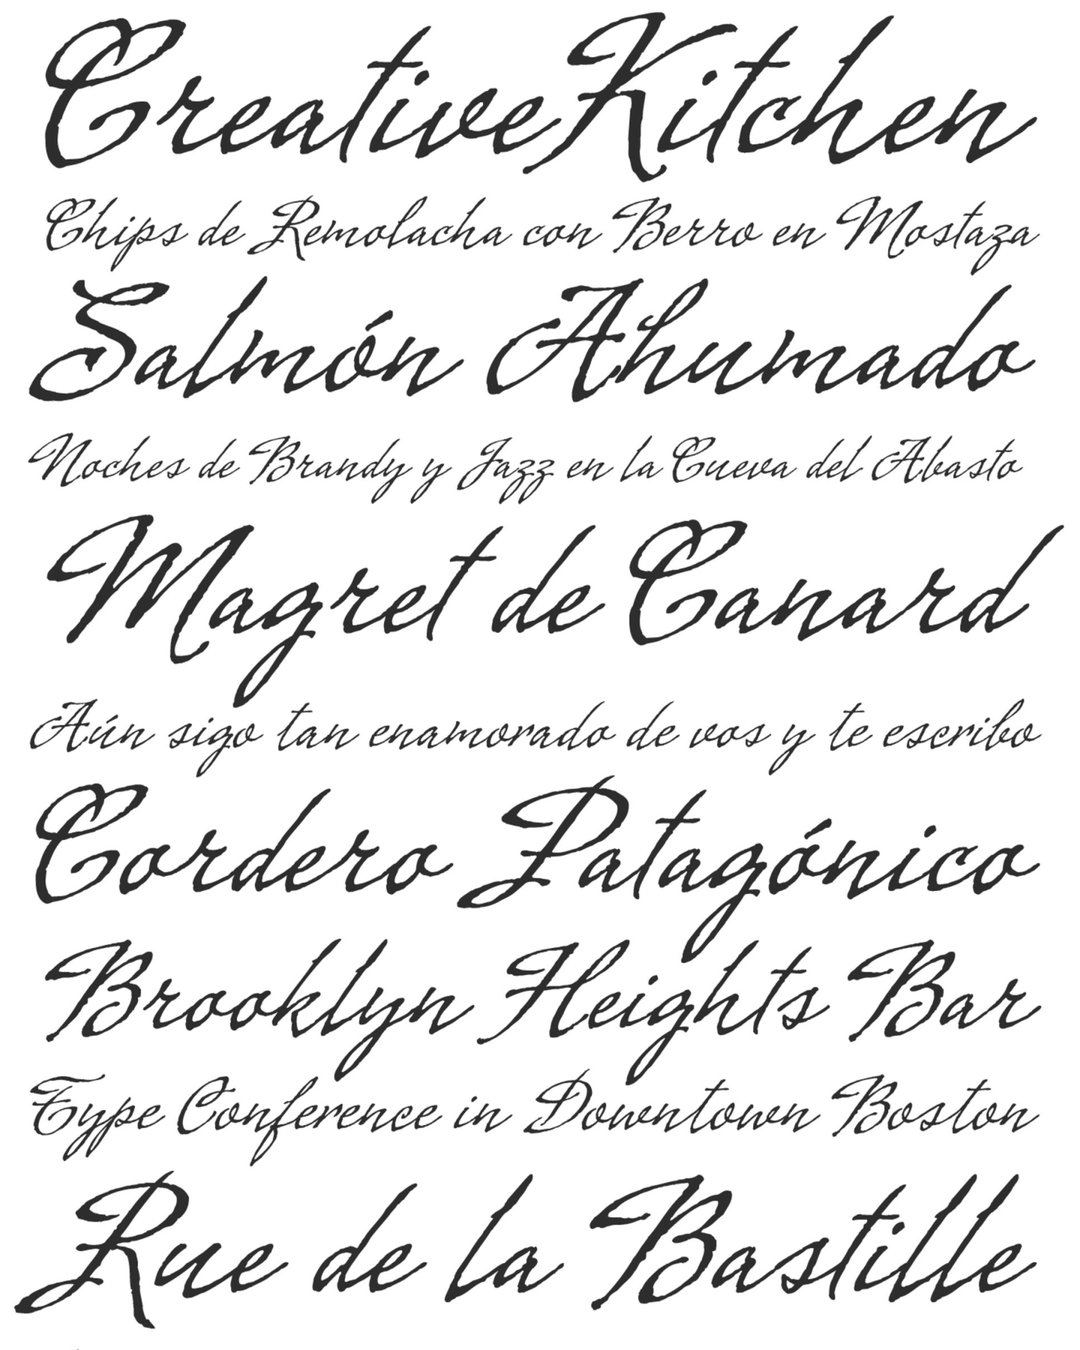 Creative Kitchen
Chips de Remolacha con Berro en Mostaza
Salmón Ahumado
Noches de Brandy y Jazz en la Cueva del Abasto
Magret de Canard
Aún sigo tan enamorado de vos y te escribo
Cordero Patagónico
Brooklyn Heights Bar
Type Conference in Downtown Boston
Rue de la Bastille